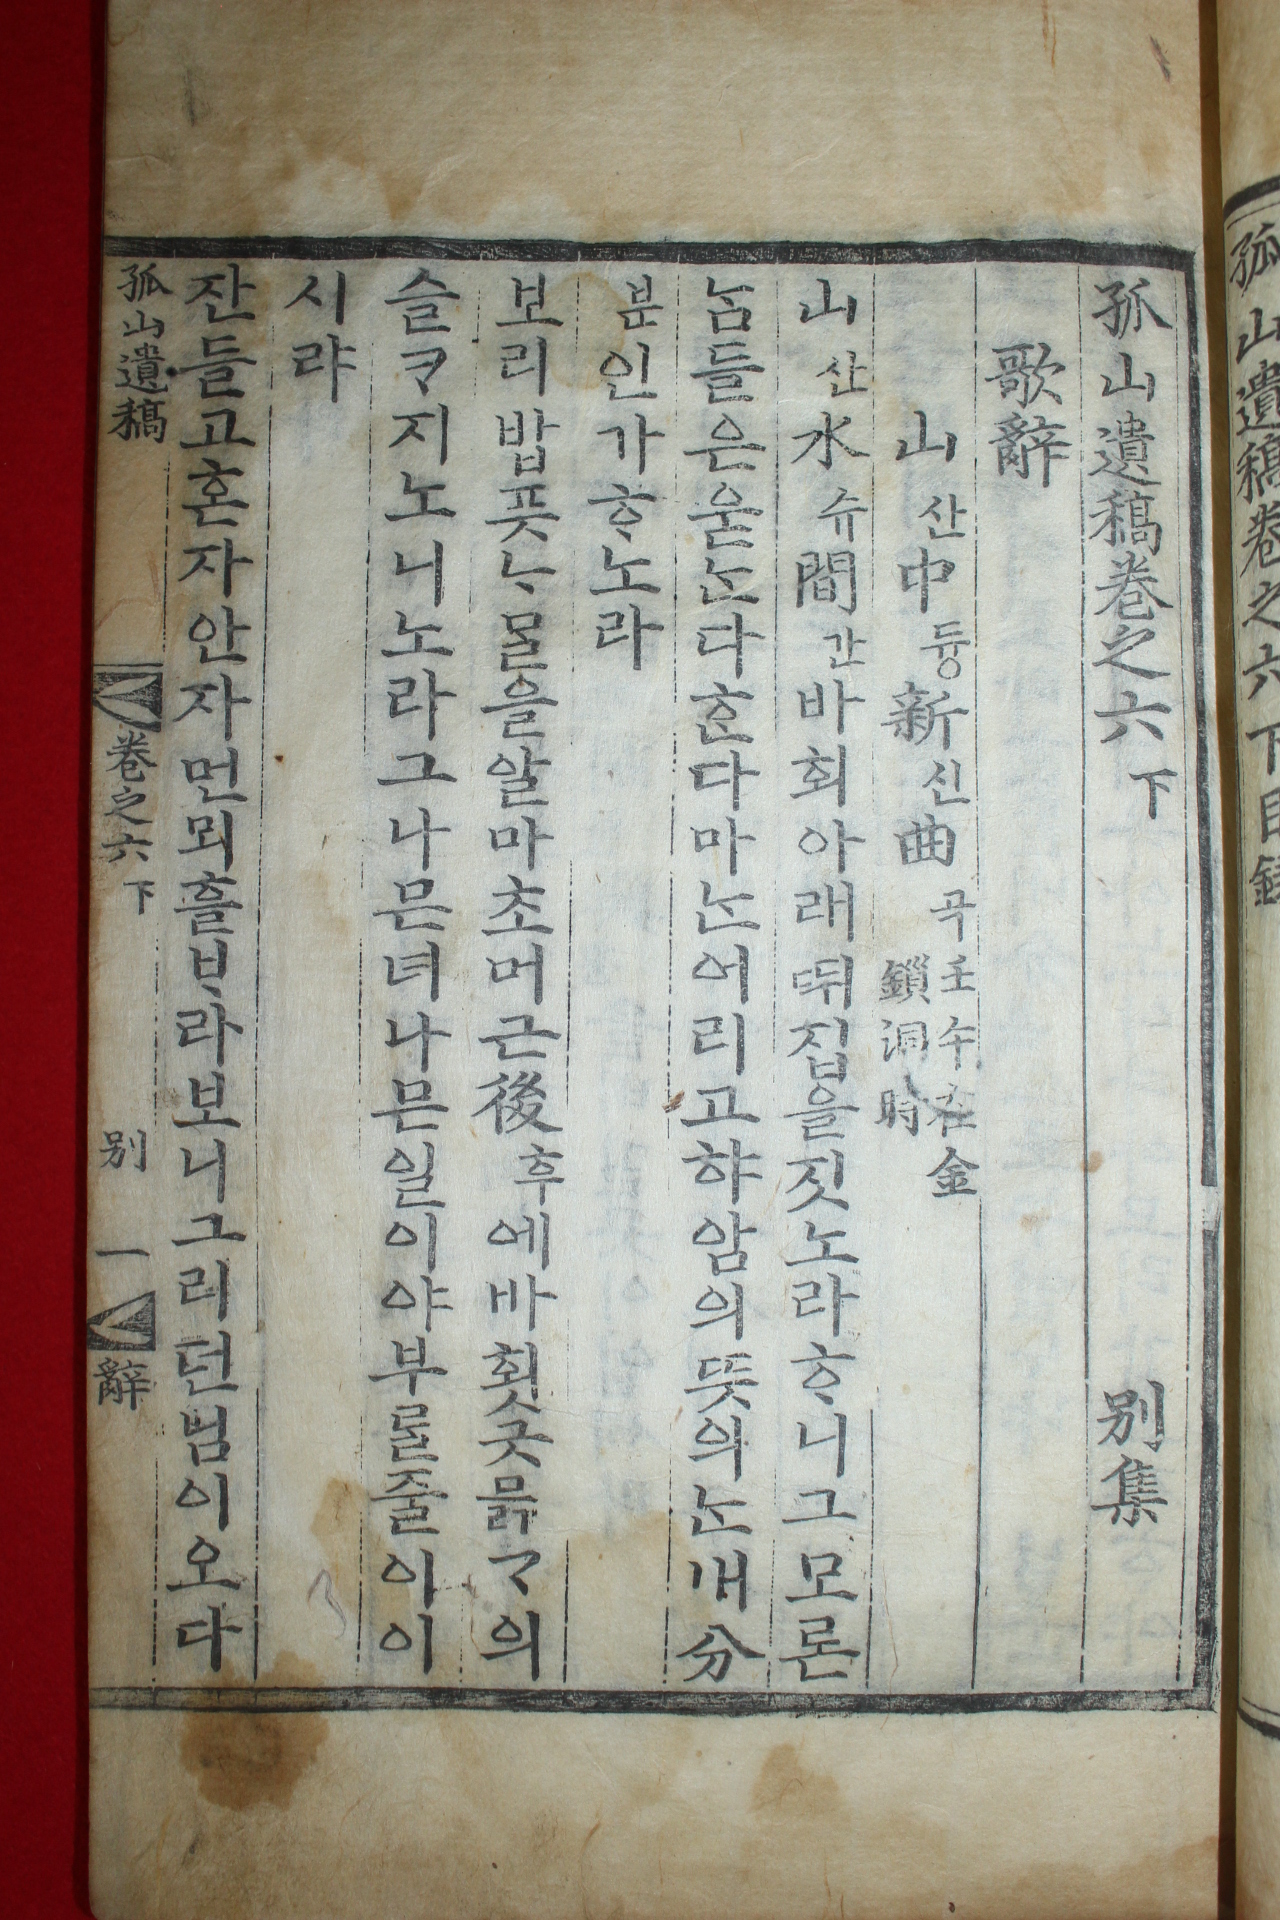 孤山遺稿卷之六下目錄
孤山遺稿卷之六 下 別集
歌辭
山산中듕新신曲곡 壬午在金鎖洞時
山산水슈間간바회아래ᄠᅱ집을짓노라ᄒᆞ니그모론
ᄂᆞᆷ들은욷ᄂᆞᆫ다ᄒᆞᆫ다마ᄂᆞᆫ어리고햐암의ᄠᅳᆺ의ᄂᆞᆫ내分
분인가ᄒᆞ노라
보리밥픗ᄂᆞᄆᆞᆯ을알마초머근後후에바횟긋믉ᄀᆞ의
슬ᄏᆞ지노니노라그나믄녀나믄일이야부ᄅᆞᆯ줄이이
시랴
잔들고혼자안자먼뫼흘ᄇᆞ라보니그리던님이오다
孤山遺稿 卷之六 下 別 一 辭